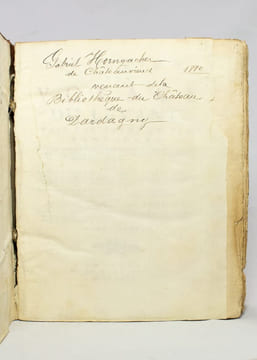 Gabriel Horngacher
de Châteauvieux 1890
venant de la
Bibliothèque du Château
de
Dardagny